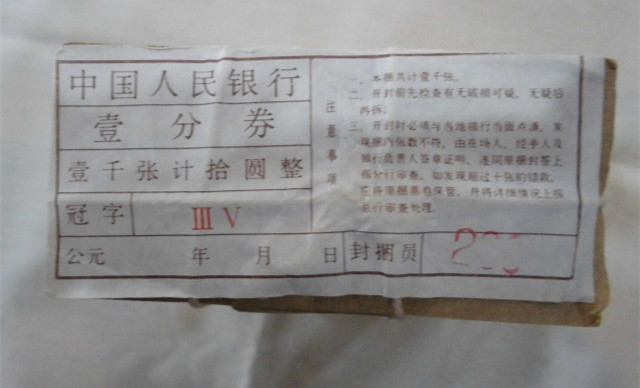 中国人民银行
壹分券
壹千张计拾圆整
冠字 ⅢⅤ
公元 年 月 日 封捆员
注意事项
一、本捆共计壹千张。
二、开封前先检查有无破损可疑,无疑后
再拆。
三、开封时必须与当地银行当面点清,发
现捆内张数不符,由在场人、经手人及
银行负责人签章证明,连同原捆封签上
报分行审查。如发现超过十张的错款,
应将原捆票券保管,并将详细情况上报
总行审查处理。